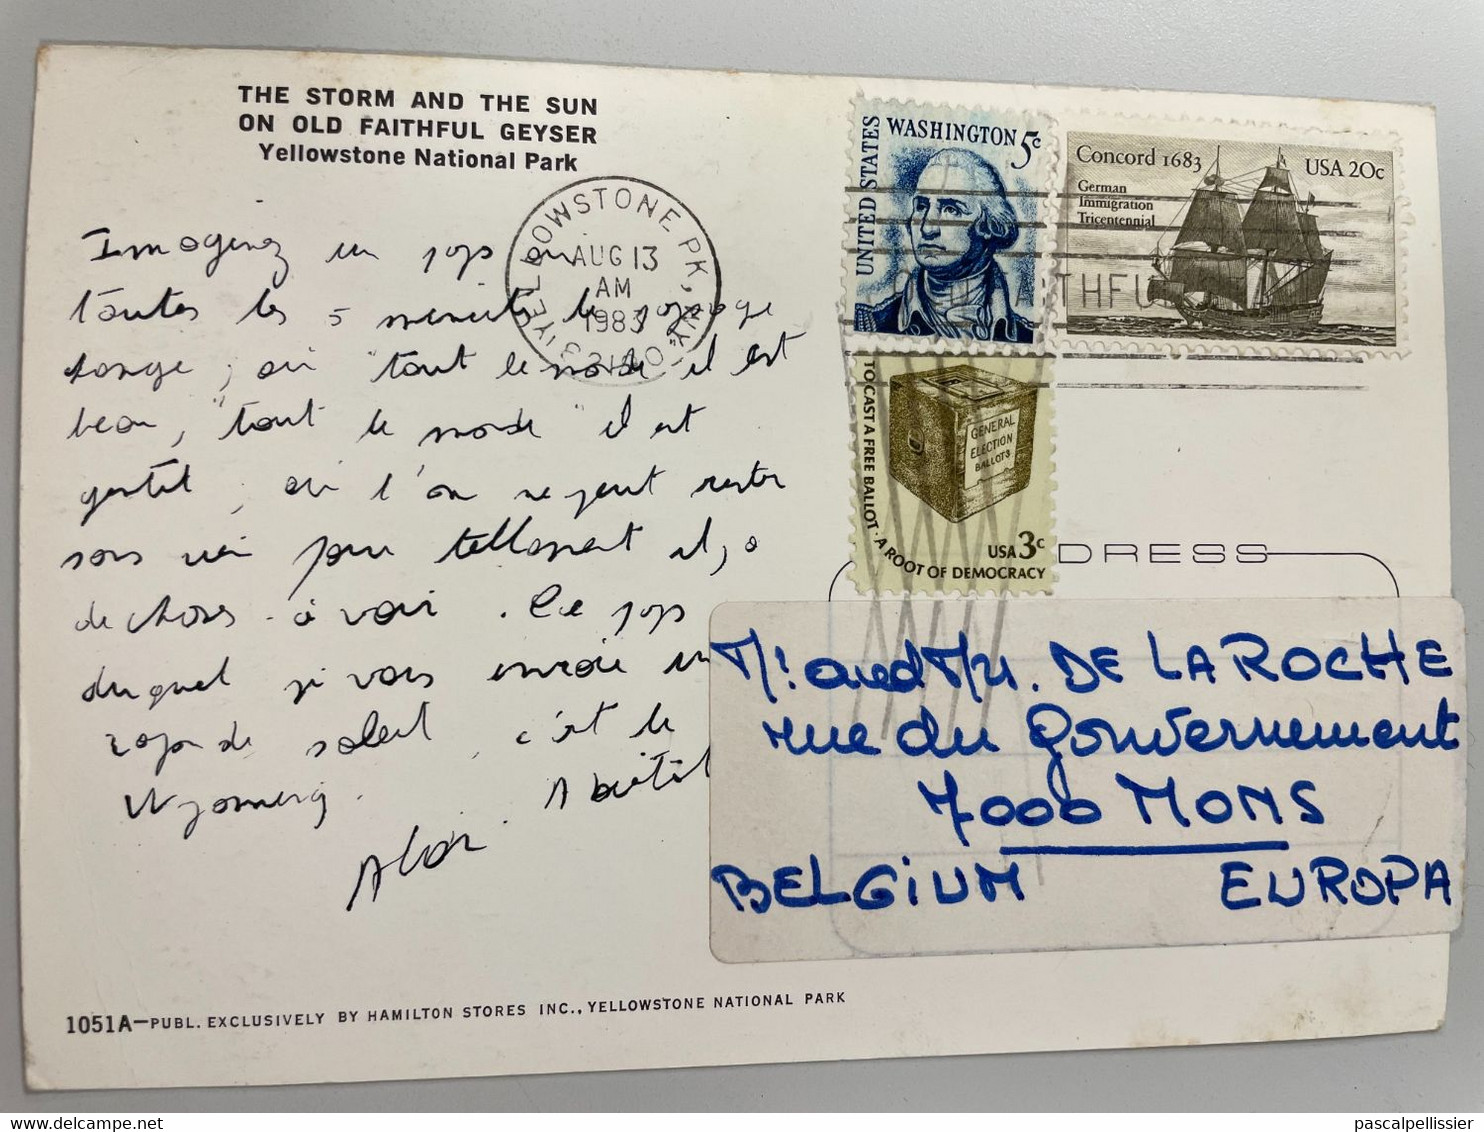 THE STORM AND THE SUN
ON OLD FAITHFUL GEYSER
Yellowstone National Park
Imaginez un pays où
toutes les 5 minutes le paysage
change, où "tout le monde il est
beau", "tout le monde" il est
gentil, où l'on ne peut rester
sans rien faire tellement il y a
de choses à voir. Ce pays
duquel je vous envoie un
rayon de soleil, c'est le
Wyoming.
A bientôt
Alain
1051A—PUBL. EXCLUSIVELY BY HAMILTON STORES INC., YELLOWSTONE NATIONAL PARK
YELLOWSTONE PK, WY
AUG 13
AM
1983
UNITED STATES
WASHINGTON 5c
Concord 1683
USA 20c
German
Immigration
Tricentennial
TO CAST A FREE BALLOT · A ROOT OF DEMOCRACY
GENERAL
ELECTION
BALLOTS
USA 3c
DRESS
DE LA ROCHE
rue du Gouvernement
7000 MONS
BELGIUM EUROPA
pascalpellissier